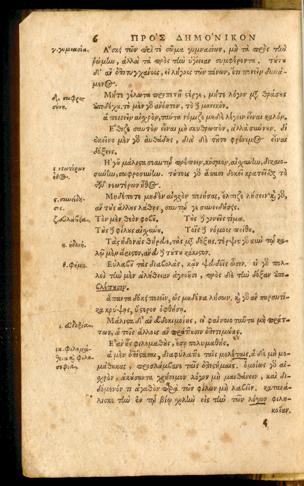 6 ΠΡΟΣ ΔΗΜΟΝΙΚΟΝ
γ. γυμνασία. Ἄσκει τῶν περὶ τὸ σῶμα γυμνασίων, μὴ τὰ πρὸς τὴν
ῥώμην, ἀλλὰ τὰ πρὸς τὴν ὑγίειαν συμφέροντα. τούτου
δ' ἂν ἐπιτυγχάνοις, εἰ λήγοις τῶν πόνων, ἔτι πονεῖν δυνά-
μενος.
Μήτε γέλωτα προπετῆ στέργε, μήτε λόγον μετὰ θράσους
ἀποδέχου. τὸ μὲν γὰρ ἀνόητον, τὸ δὲ μανικόν.
ἃ ποιεῖν αἰσχρὸν, ταῦτα νόμιζε μηδὲ λέγειν εἶναι καλόν.
Ἔθιζε σαυτὸν εἶναι μὴ σκυθρωπὸν, ἀλλὰ σύννουν. δι'
ἐκεῖνο μὲν γὰρ αὐθάδης, διὰ δὲ τοῦτο φρόνιμος εἶναι
δόξεις.
Ἡγοῦ μάλιστα σαυτῷ πρέπειν, κόσμον, αἰσχύνην, δικαιο-
σύνην, σωφροσύνην. τούτοις γὰρ ἅπασι δοκεῖ κρατεῖσθαι τὸ
τῶν νεωτέρων ἦθος.
Μηδέποτε μηδὲν αἰσχρὸν ποιήσας, ἔλπιζε λήσειν. καὶ γὰρ,
ἂν τοὺς ἄλλους λάθῃς, σαυτῷ γε συνειδήσεις.
Τὸν μὲν Θεὸν φοβοῦ, Τοὺς δὲ γονεῖς τίμα.
Τοὺς δὲ φίλους αἰσχύνου, Τοῖς δὲ νόμοις πείθου.
Τὰς ἡδονὰς θήρευε, τὰς μετὰ δόξης. τέρψις γὰρ σὺν τῷ κα-
λῷ μὲν ἄριστον, ἄνευ δὲ τούτου κάκιστον.
Εὐλαβοῦ τὰς διαβολὰς, κἂν ψευδεῖς ὦσιν. οἱ γὰρ πολ-
λοὶ τὴν μὲν ἀλήθειαν ἀγνοοῦσι, πρὸς δὲ τὴν δόξαν ἀπο-
βλέπουσιν.
ἅπαντα δόκει ποιεῖν, ὡς μηδένα λήσων. καὶ γὰρ ἂν παραυτί-
κα κρύψῃς, ὕστερον ὀφθήσῃ.
Μάλιστα δ' ἂν εὐδοκιμοίης, εἰ φαίνοιο ταῦτα μὴ πράτ-
των, ἃ τοῖς ἄλλοις ἂν πράττουσιν ἐπιτιμῴης.
Ἐὰν ᾖς φιλομαθὴς, ἔσῃ πολυμαθής.
ἃ μὲν ἐπίστασαι, διαφύλαττε ταῖς μελέταις, ἃ δὲ μὴ με-
μάθηκας, προσλάμβανε ταῖς ἐπιστήμαις. ὁμοίως γὰρ αἰ-
σχρὸν, ἀκούσαντα χρήσιμον λόγον μὴ μανθάνειν, καὶ δι-
δόμενόν τι ἀγαθὸν παρὰ τῶν φίλων μὴ λαβεῖν. κατανά-
λισκε τὴν ἐν τῷ βίῳ σχολὴν εἰς τὴν τῶν λόγων φιλη-
κοΐαν.